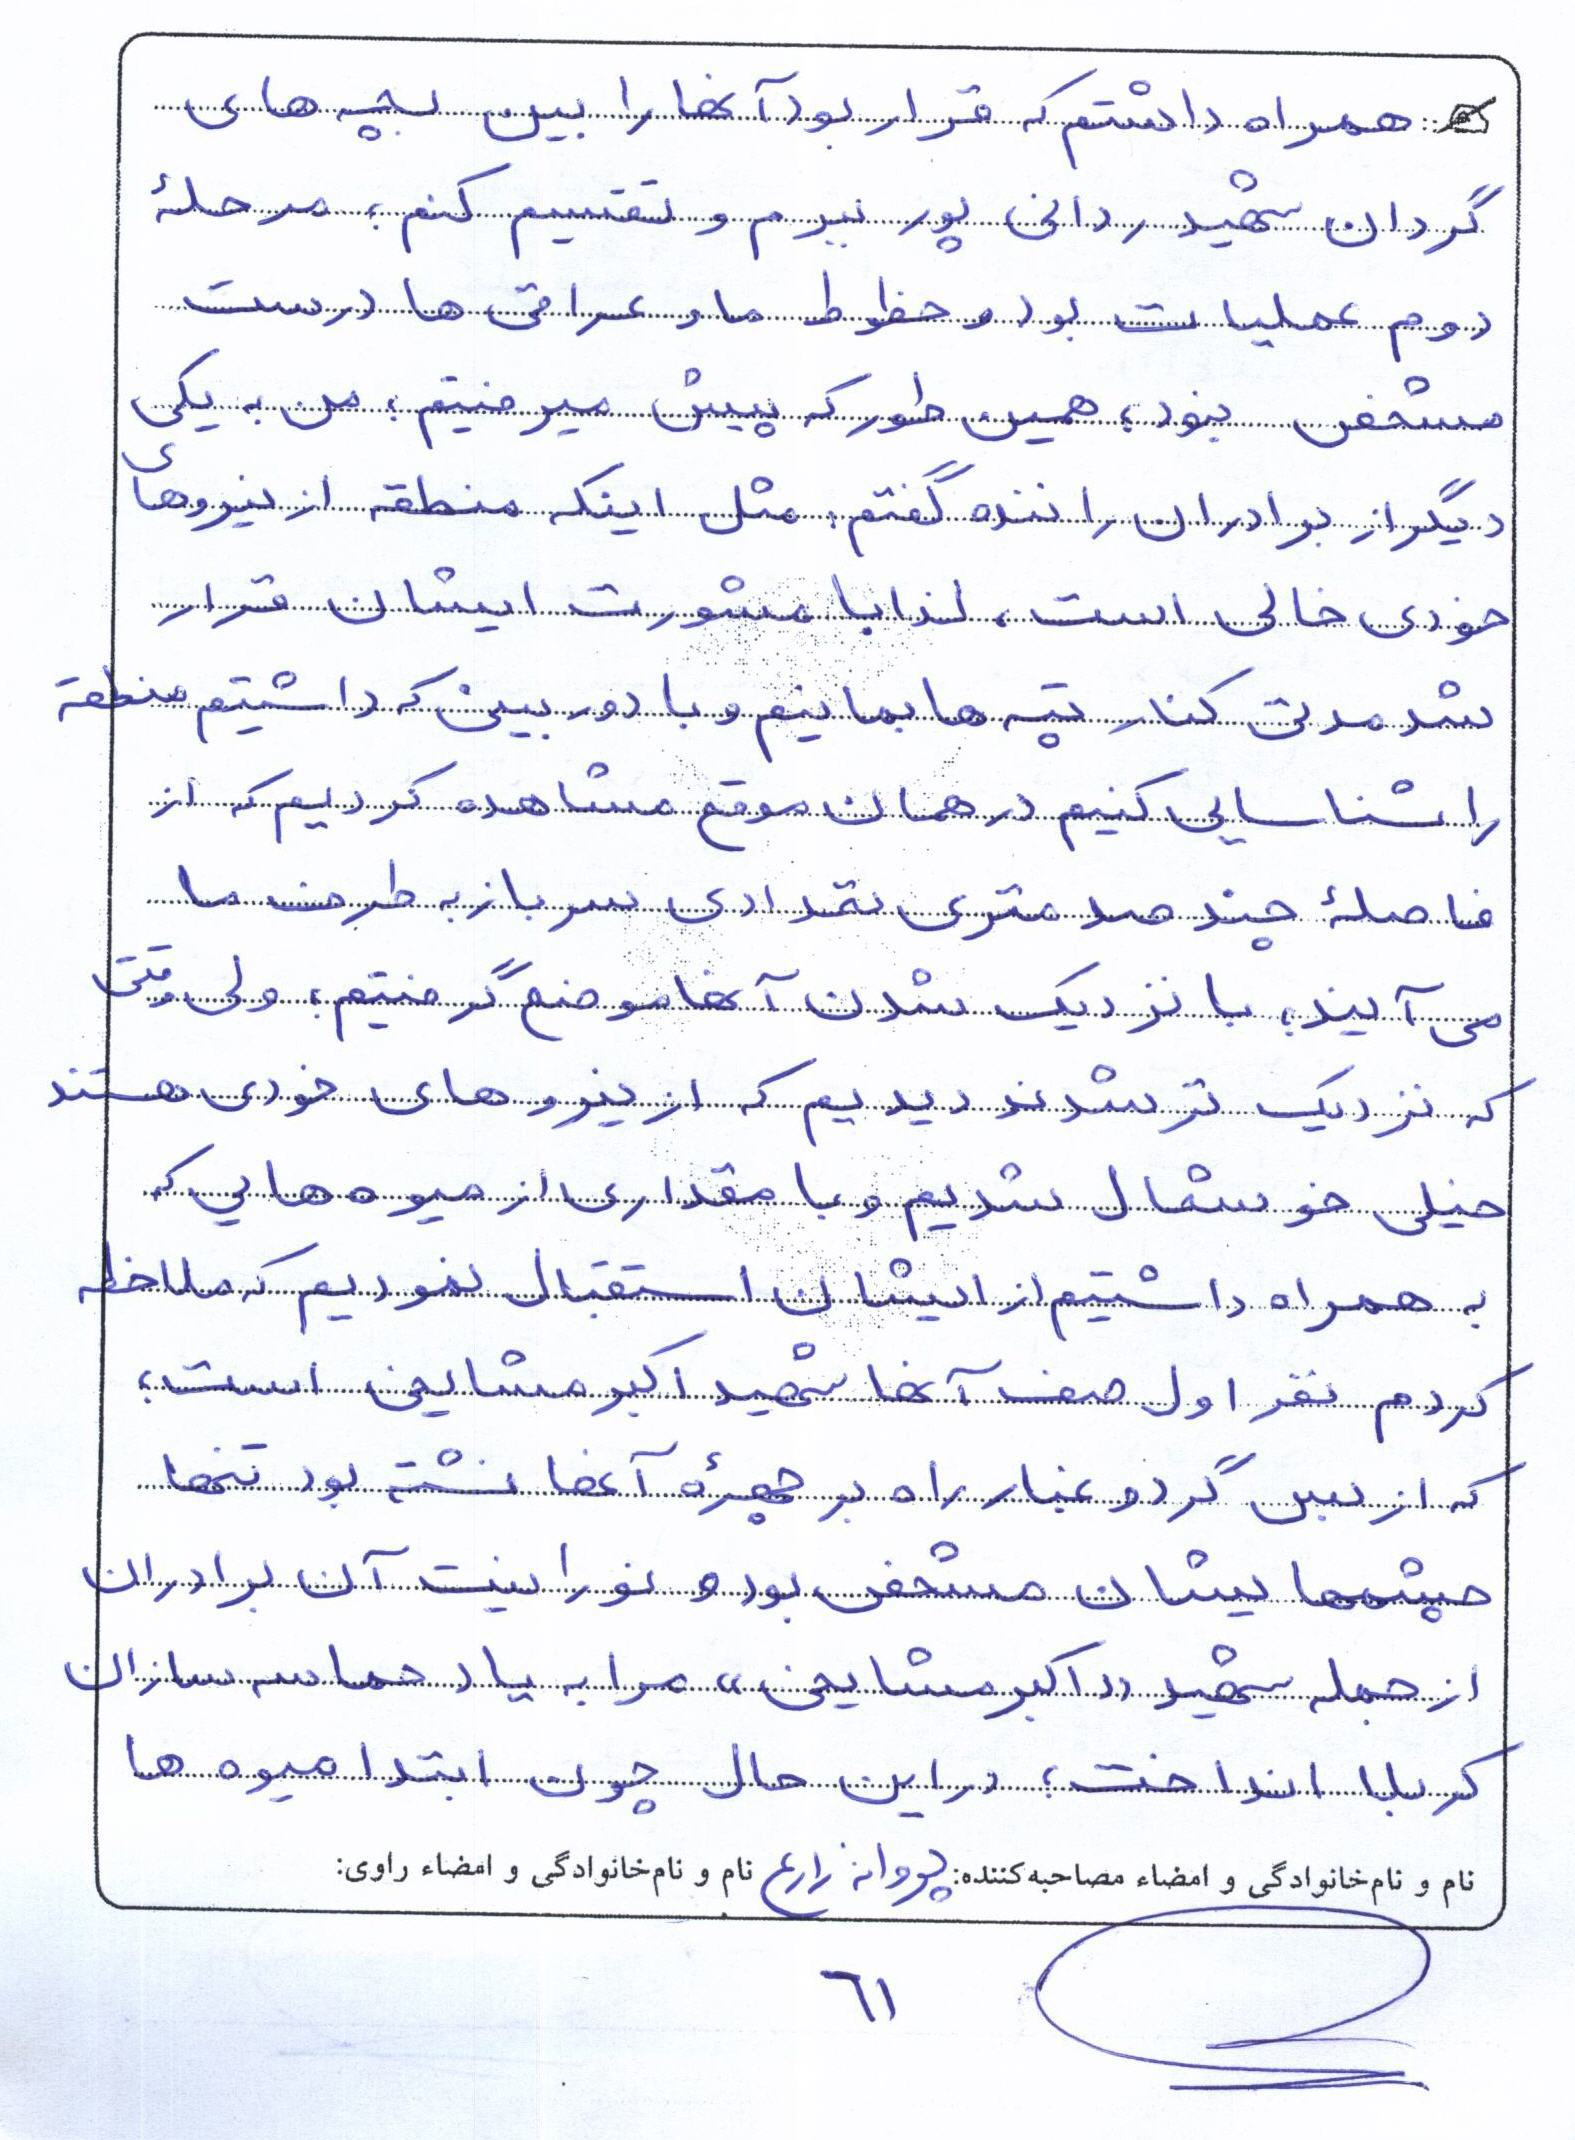 همراه داشتم که قرار بود آنها را بین بچه های
گردان شهید ردانی پور ببرم و تقسیم کنم؛ مرحلهٔ
دوم عملیات بود و خطوط ما و عراقی ها درست
مشخص نبود؛ همین طور که پیش میرفتیم؛ من به یکی
دیگر از برادران راننده گفتم: مثل اینکه منطقه از نیروهای
خودی خالی است، لذا با مشورت ایشان قرار
شد مدتی کنار تپه ها بمانیم و با دوربینی که داشتیم منطقه
را شناسایی کنیم در همان موقع مشاهده کردیم که از
فاصلهٔ چند صد متری تعدادی سرباز به طرف ما
می آیند؛ با نزدیک شدن آنها موضع گرفتیم؛ ولی وقتی
که نزدیک تر شدند دیدیم که از نیروهای خودی هستند
خیلی خوشحال شدیم و با مقداری از میوه هایی که
به همراه داشتیم از ایشان استقبال نمودیم که ملاحظه
کردم نفر اول صف آنها شهید اکبر مشایخی است؛
که از بس گرد و غبار راه بر چهرهٔ آنها نشته بود تنها
چشمهایشان مشخص بود و نورانیت آن برادران
از جمله شهید «اکبر مشایخی» مرا به یاد حماسه سازان
کربلا انداخت؛ در این حال چون ابتدا میوه ها
نام و نام‌خانوادگی و امضاء مصاحبه‌کننده: پروانه زارع نام و نام‌خانوادگی و امضاء راوی:
٦١